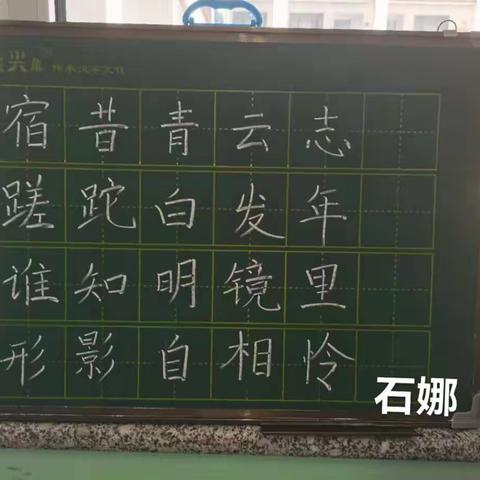 宿昔青云志
蹉跎白发年
谁知明镜里
形影自相怜
石娜